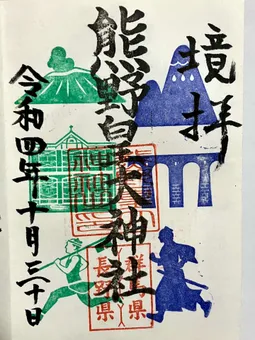 境拝
熊野皇大神社
令和四年十月三十日
群馬県
長野県